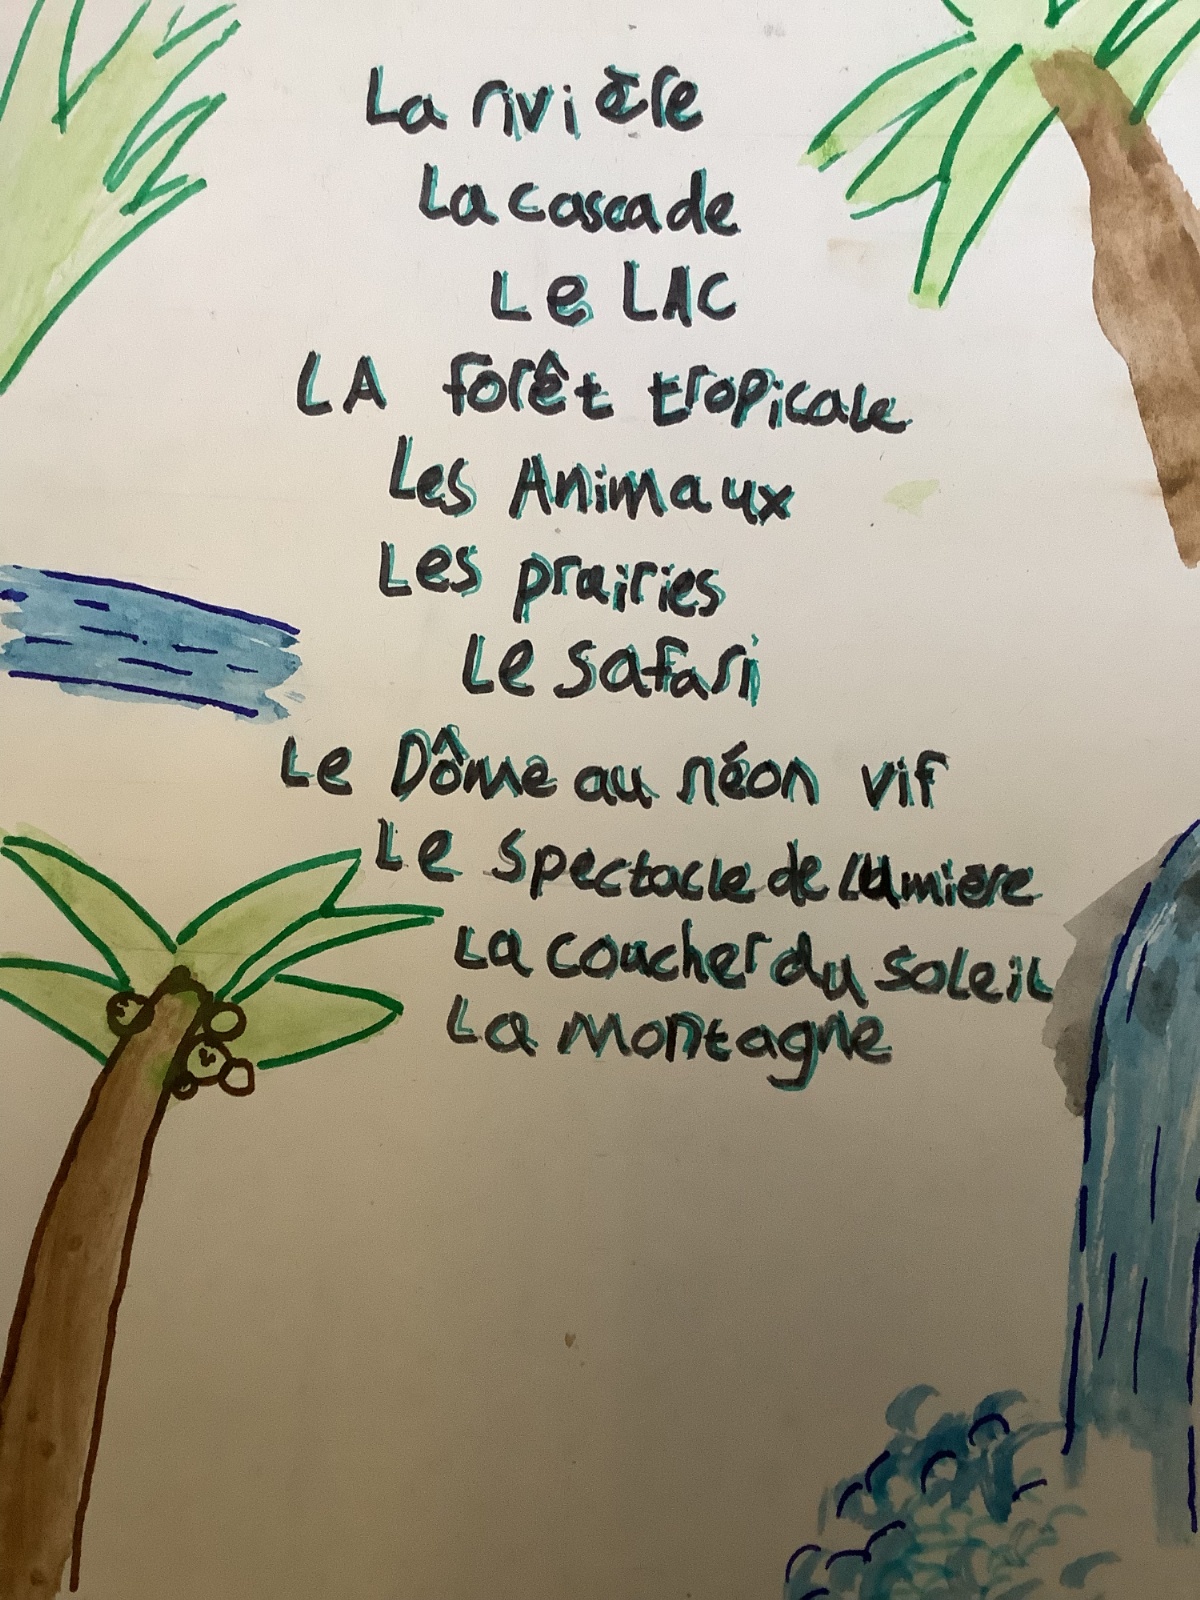 La rivière
La cascade
Le LAC
LA forêt tropicale
Les Animaux
Les prairies
Le safari
Le Dôme au néon vif
Le spectacle de lumière
La coucher du soleil
La montagne